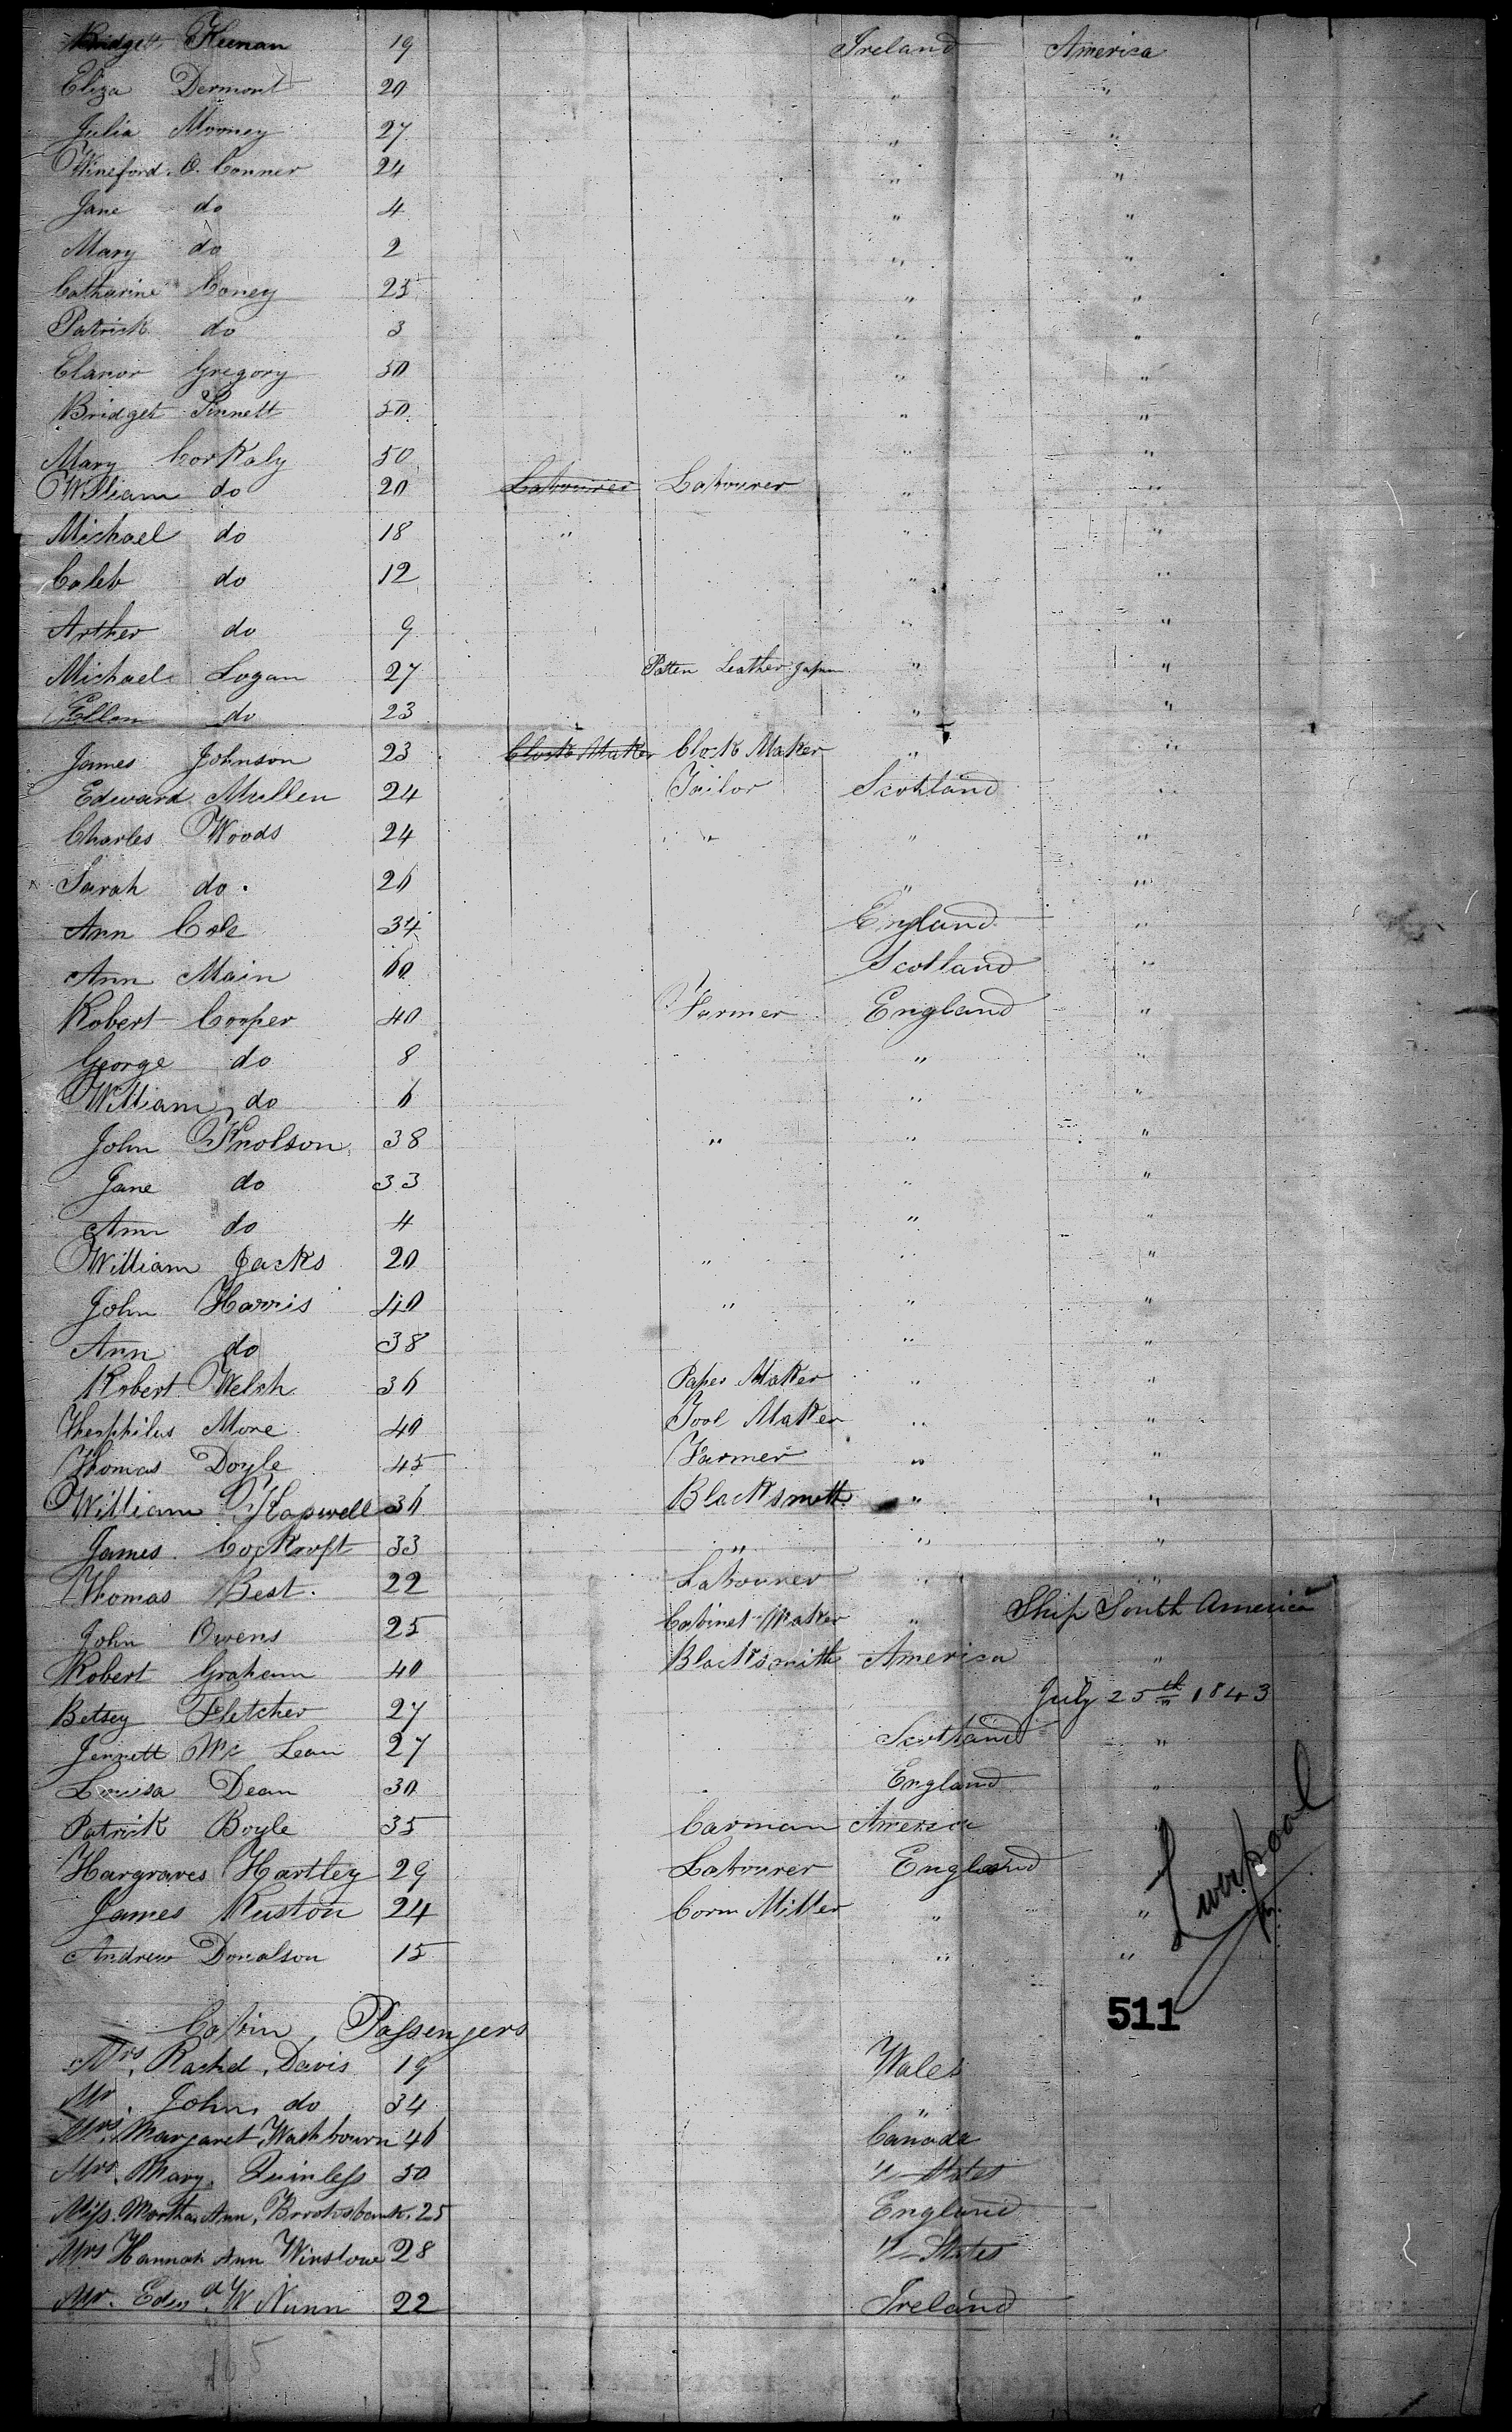 Bridget Keenan 19 Ireland America
Eliza Dermont 20 " "
Julia Mooney 27 " "
Wineford O. Conner 24 " "
Jane do 4 " "
Mary do 2 " "
Catharine Coney 25 " "
Patrick do 3 " "
Elanor Gregory 50 " "
Bridget Sinnett 50 " "
Mary Corkaly 50 " "
William do 20 Labourer Labourer " "
Michael do 18 " " "
Caleb do 12 " "
Arther do 9 " "
Michael Logan 27 Patten Leather Japan " "
Ellen do 23 " "
James Johnson 23 Clock Maker Clock Maker " "
Edward Mullen 24 Tailor Scotland "
Charles Woods 24 " " "
Sarah do. 26 " "
Ann Cole 34 England "
Ann Main 60 Scotland "
Robert Cooper 40 Farmer England "
George do 8 " "
William do 6 " "
John Knolson 38 " " "
Jane do 33 " "
Ann do 4 " "
William Jacks 20 " " "
John Harris 40 " " "
Ann do 38 " "
Robert Welsh 36 Paper Maker " "
Theophilus More 40 Tool Maker " "
Thomas Doyle 45 Farmer " "
William Hapwell 36 Blacksmith " "
James Cockroft 33 " " "
Thomas Best. 22 Labourer " "
Ship South America
John Owens 25 Cabinet Maker "
Robert Graham 40 Blacksmith America "
July 25th 1843
Betsey Fletcher 27
Jennett Mc Lean 27 Scotland "
Louisa Dean 30 England "
Patrick Boyle 35 Carman America "
Liverpool
Hargraves Hartley 29 Labourer England
James Ruston 24 Corn Miller " "
Andrew Donalson 15 " "
511
Cabin Passengers
Mrs. Rachel Davis 19 Wales
Mr. John do 34 "
Mrs. Margaret Washbourn 46 Canada
Mrs. Mary Quinless 50 U States
Miss. Martha Ann, Brooksbank. 25 England
Mrs Hannah Ann Winslow 28 U States
Mr. Edwd. W Nunn 22 Ireland
165